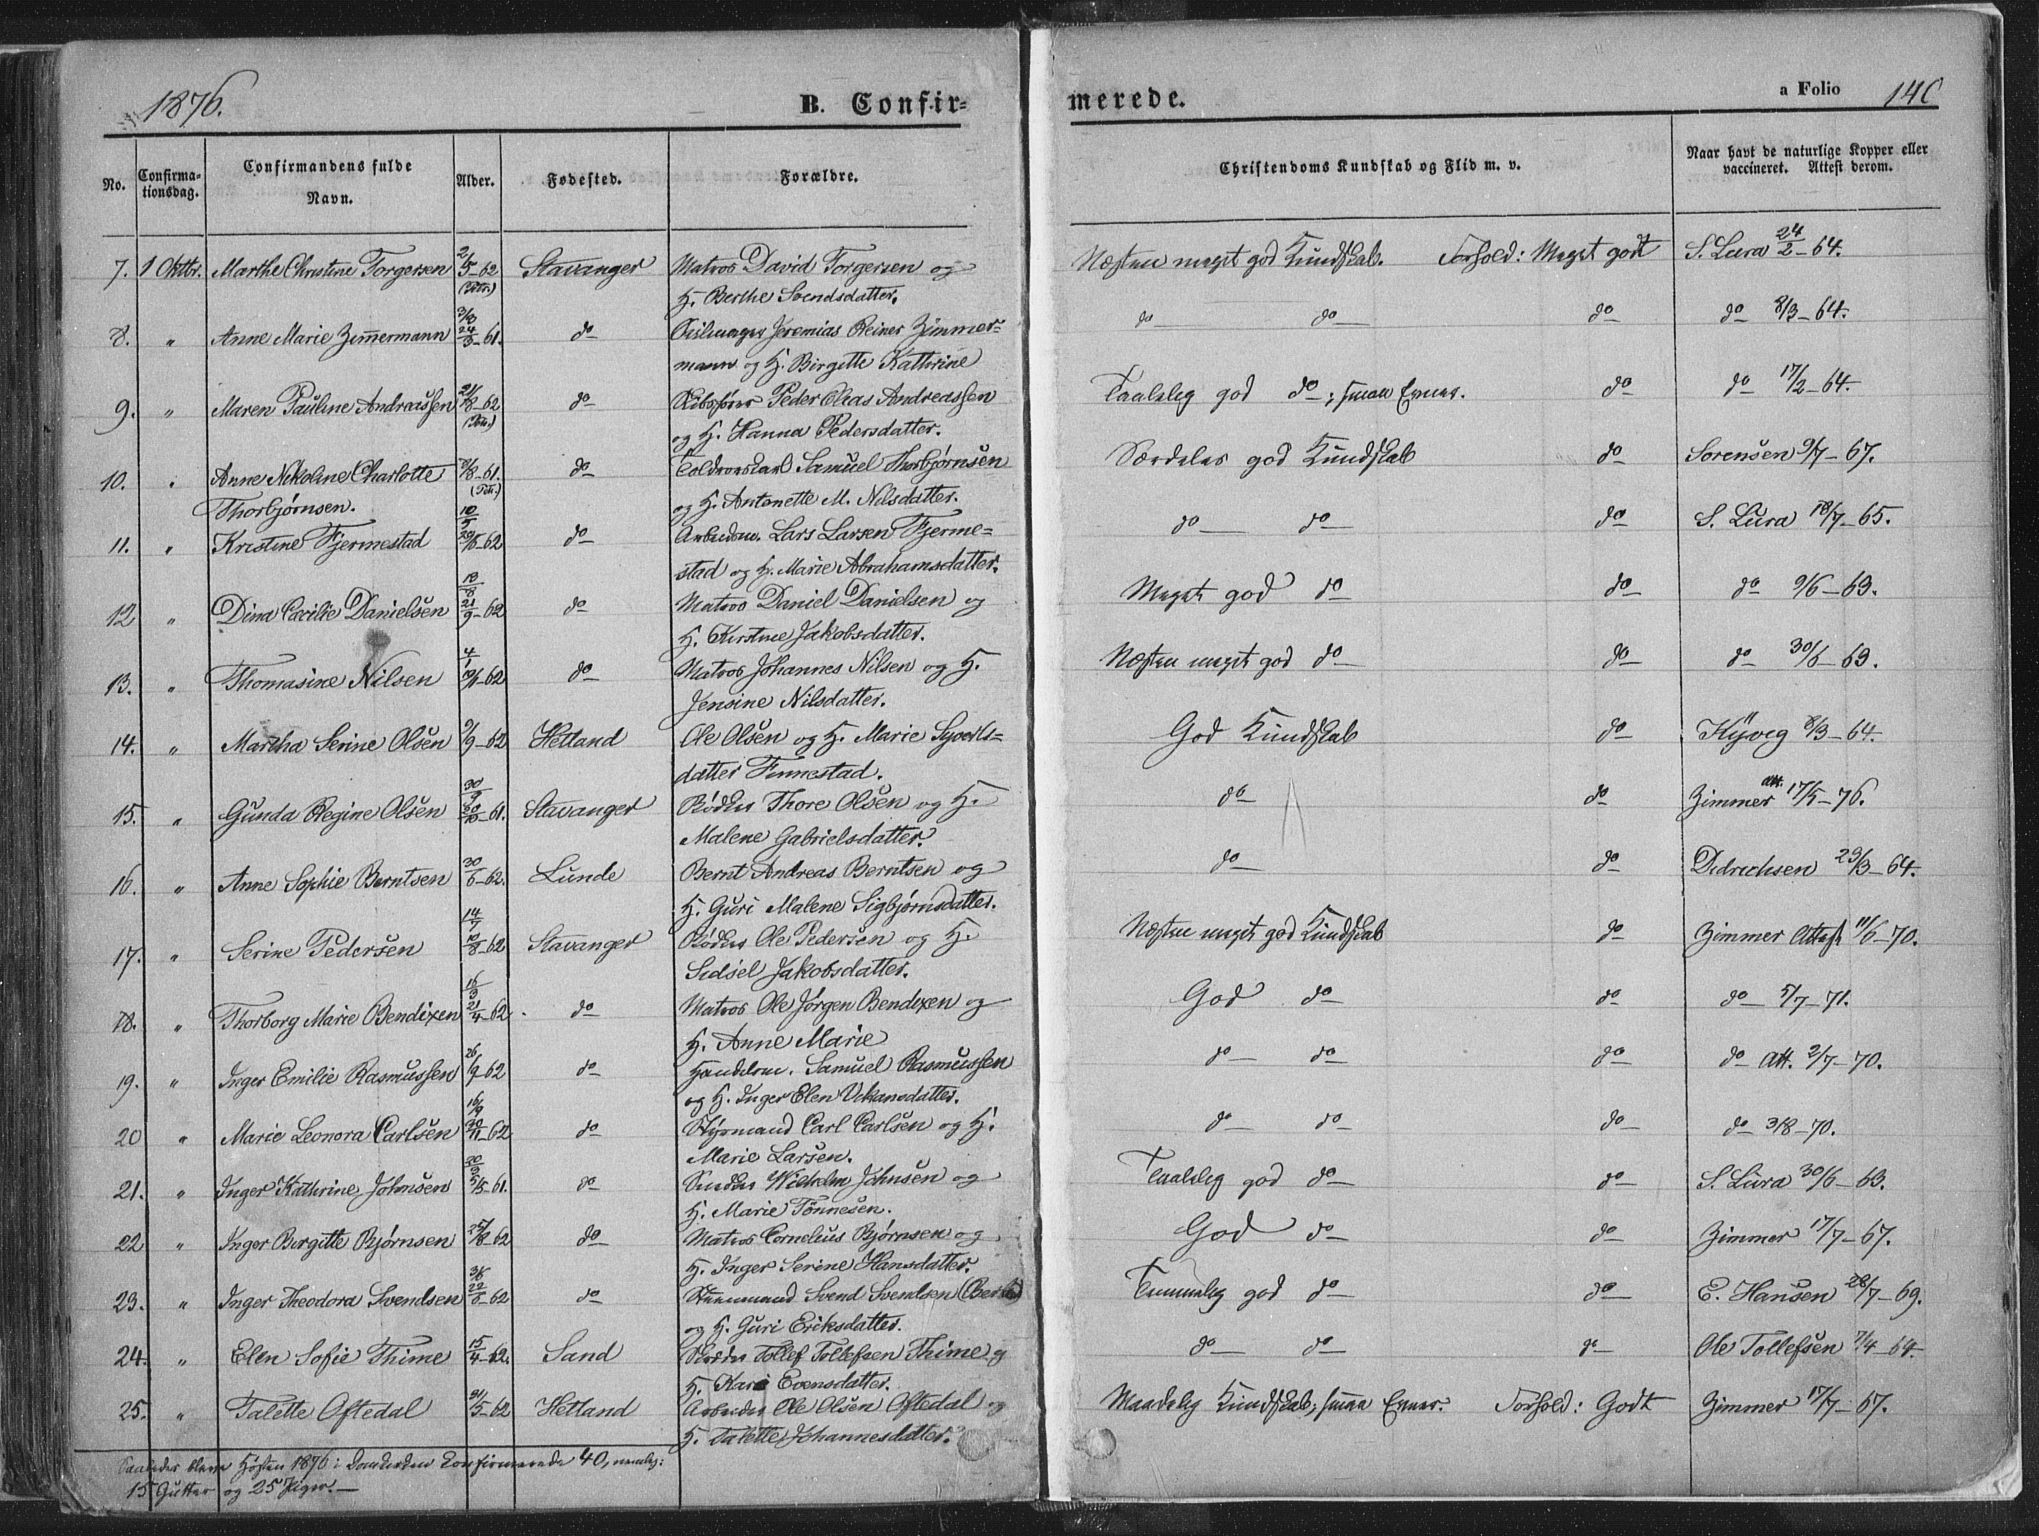 1876.
B. Confir-
merede.
a Folio 140
No.
Confirma-
tionsdag.
Confirmandens fulde
Navn.
Alder.
Fødested.
Forældre.
Christendoms Kundskab og Flid m. v.
Naar havt de naturlige Kopper eller
vaccineret. Attest derom.
7. 1 Oktbr. Marthe Christine Torgersen 2/5-62 Stavanger Matros David Torgersen og Næsten meget god Kundskab. Forhold: Meget godt S. Lura 24/2-64.
(Petr.) H. Berthe Svendsdatter.
8. " Anne Marie Zimmermann 24/3-61. do Jeremias Reiner Zimmer= do do do do 8/3-64.
mann og H. Birgitte Kathrine
9. " Maren Pauline Andreassen 21/8-62 do Skibsfører Peder Elias Andreassen Taalelig god do; smaa Evner. do do 17/2-64.
(Petr.) og H. Hanna Pedersdatter.
10. " Anne Nikoline Charlotte 21/8-61. do Toldvonskarl Samuel Thorbjørnsen Særdeles god Kundskab do Sorensen 9/7-67.
Thorbjørnsen. (Petr.) og H. Antonette M. Nilsdatter.
11. " Kristine Fjermestad 20/5-62 do Arbeidsm. Lars Larsen Fjerme= do do do S. Lura 18/7-65.
stad og H. Marie Abrahamsdatter.
12 " Dina Cecilie Danielsen 21/9-62 do Matros Daniel Danielsen og Meget god do do do 9/6-63.
H. Kirstine Jakobsdatter.
13. " Thomasine Nilsen 10/1-62 do Matros Johannes Nilsen og H. Næsten meget god do do do 30/6-63.
Jensine Nilsdatter.
14. " Martha Serine Olsen 9/9-62 Hetland Ole Olsen og H. Marie Syverts= God Kundskab do Kÿveg 8/3-64.
datter Finnestad.
15. " Gunda Regine Olsen 30/10-61. Stavanger Bødker Thore Olsen og H. do do Zimmer att. 17/5-76.
Malene Gabrielsdatter.
16. " Anne Sophie Berntsen 30/6-62. Lunde Bernt Andreas Berntsen og do do Didrichsen 23/3-64.
H. Guri Malene Sigbjørnsdatter.
17. " Serine Pedersen 10/8-62 Stavanger Bødker Ole Pedersen og H. Næsten meget god Kundskab do Zimmer Attest 11/6-70.
Sidsel Jakobsdatter.
18. " Thorborg Marie Bendixen 21/4-62. do Matros Ole Jørgen Bendixen og God do do do 5/7-71.
H. Anne Marie
19. " Inger Emilie Rasmussen 26/9-62 do Handelsm. Samuel Rasmussen do do do do Att. 2/7-70.
og H. Inger Elen Vikansdatter.
20 " Marie Leonora Carlsen 30/11-62 do Styrmand Carl Carlsen og H. do do do do 3/8-70.
Marie Larsen.
21. " Inger Kathrine Johnsen 5/5-61. do Snedker Wilhelm Johnsen og Taalelig god do do S. Lura 30/6-63.
H. Marie Tönnesen.
22 " Inger Birgitte Bjørnsen 25/8-62 do Matros Cornelius Bjørnsen og God do do Zimmer 17/7-67.
H. Inger Serine Hansdatter.
23. " Inger Theodora Svendsen 22/6-62 do Svend Svendsen Temmelig god do do E. Hansen 28/7-69.
og H. Guri Eriksdatter.
24. " Elen Sofie Thime 15/4-62. Sand Tollef Tollefsen Thime og do do do Ole Tollefsen 7/4-64.
H. Kari Evensdatter.
25. " Talette Oftedal 21/5-62 Hetland Arbeider Ole Olsen Oftedal og Maadelig Kundskab; smaa Evner. Forhold: Godt Zimmer 17/7-67.
H. Talette Johannesdatter.
Saaledes bleve Høsten 1876 i Domkirken Konfirmerede 40, nemlig:
15 Gutter og 25 Piger.